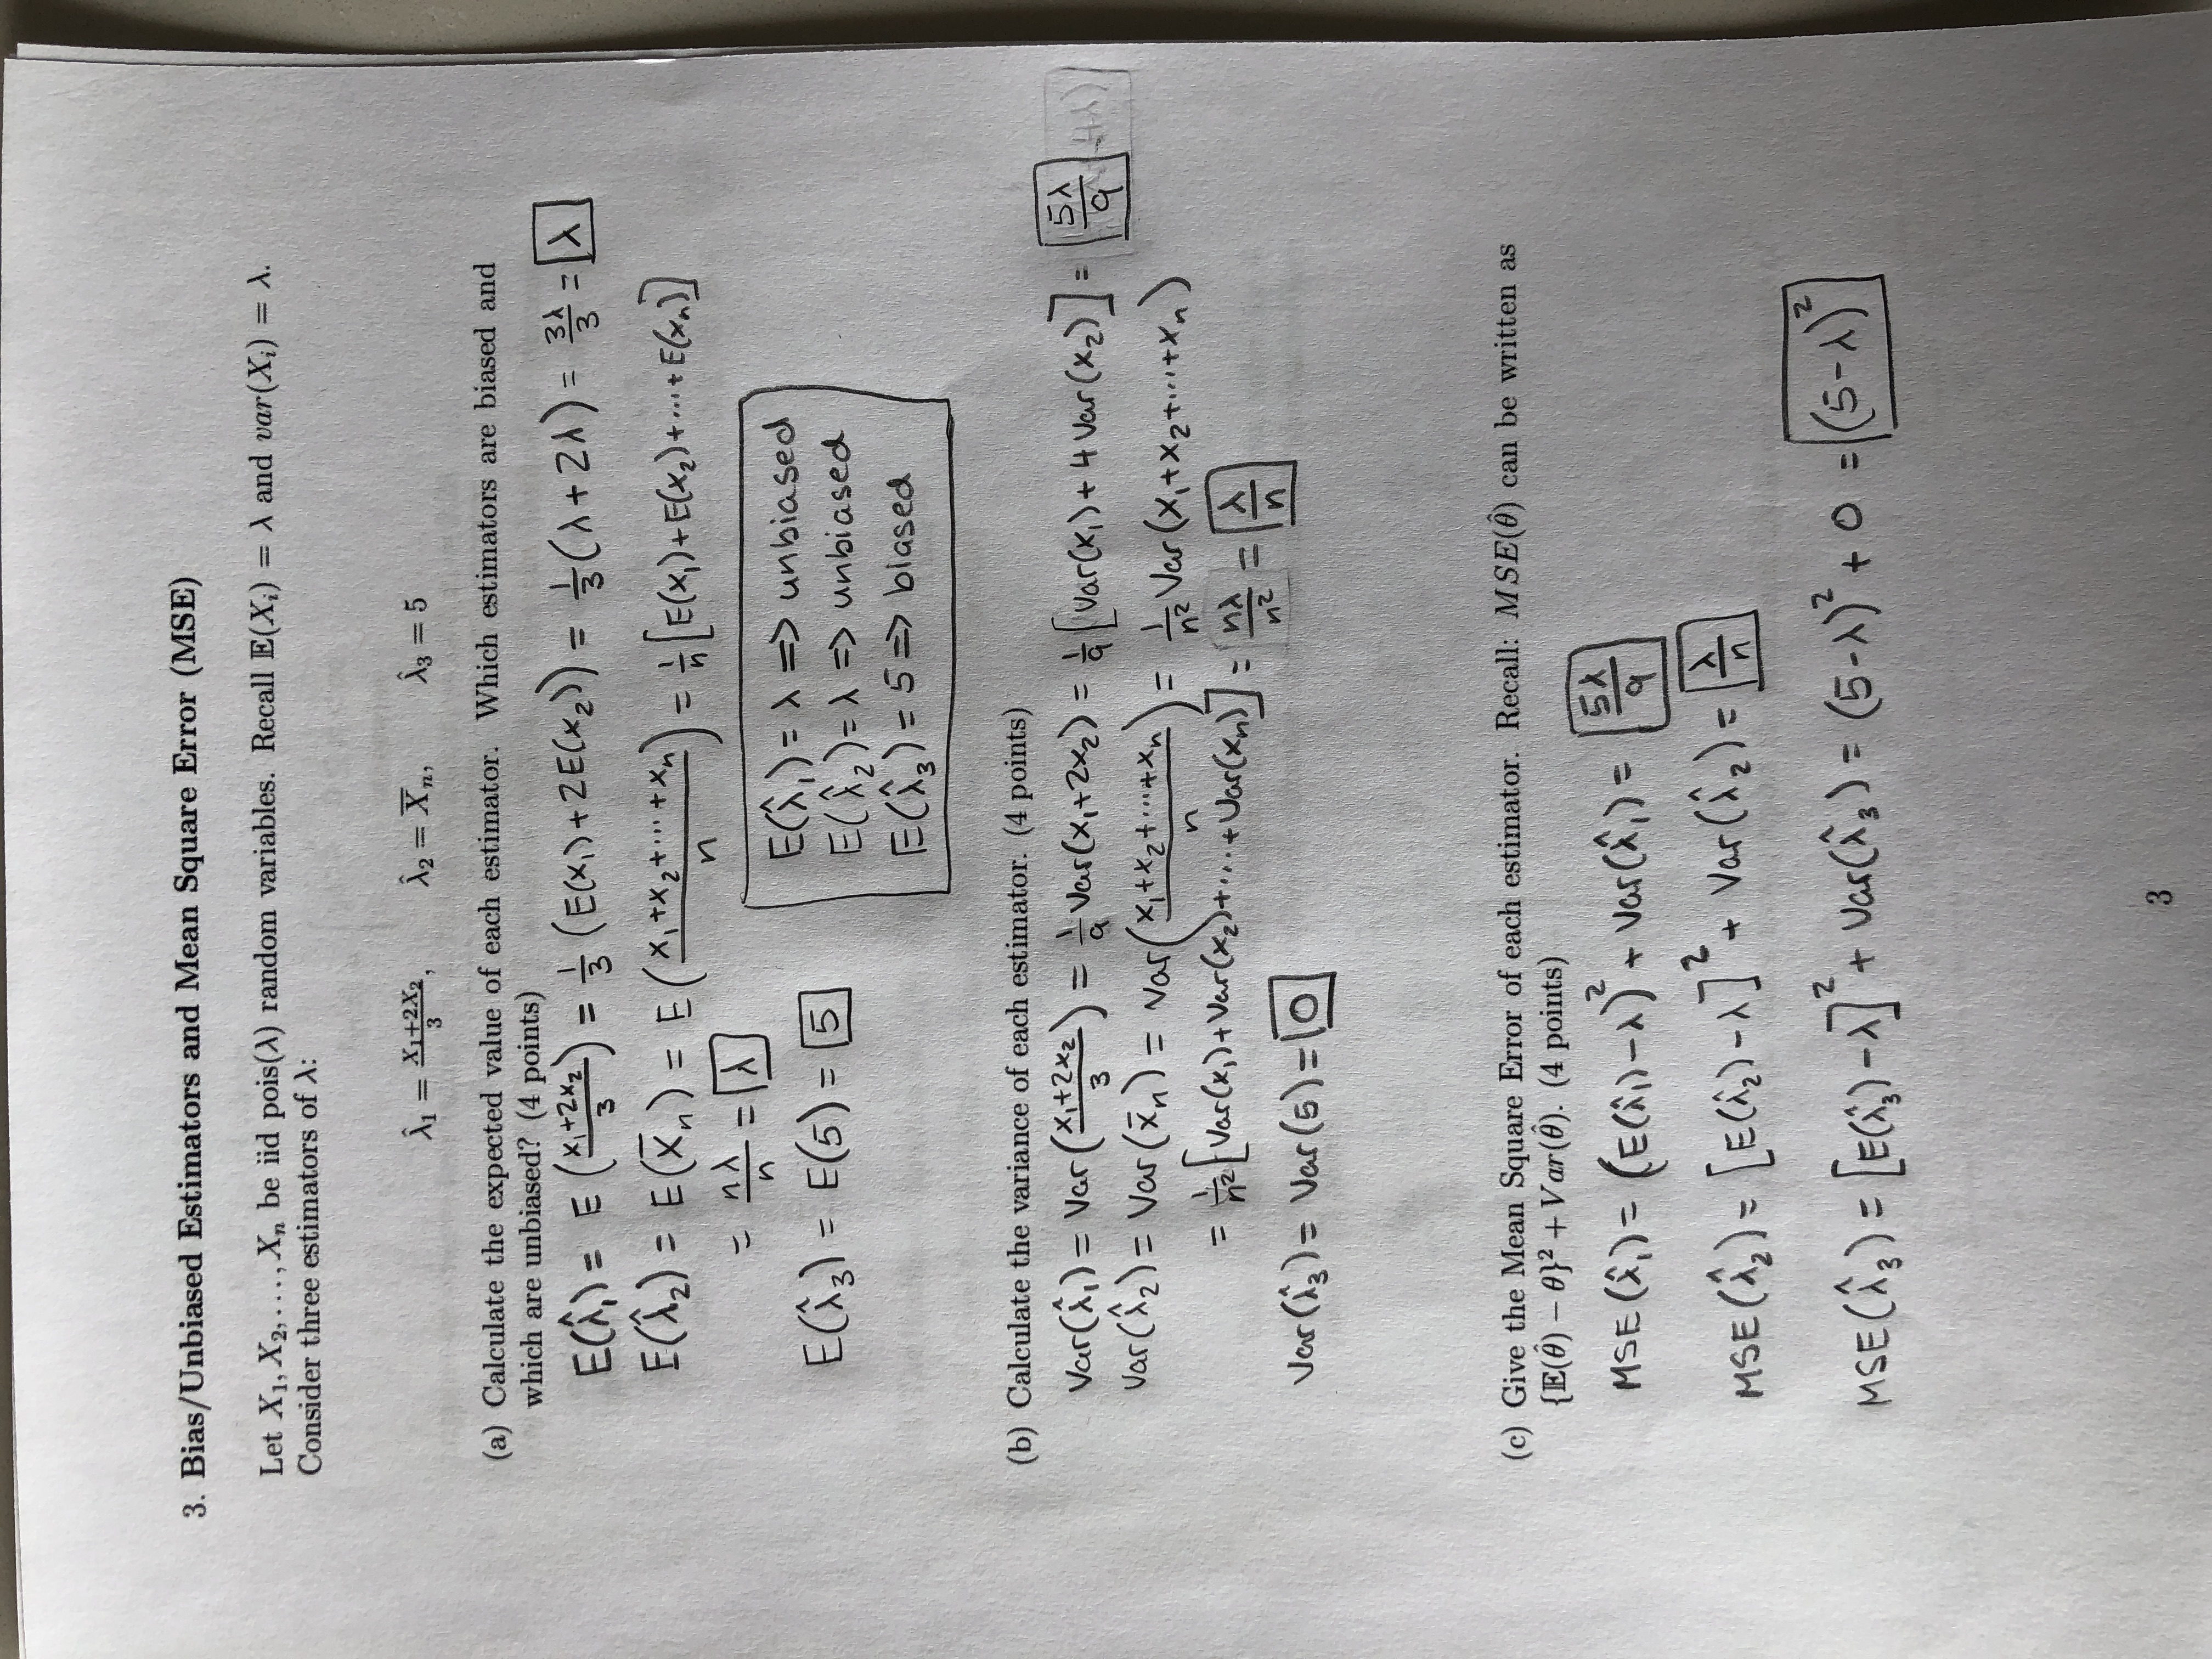 3. Bias/Unbiased Estimators and Mean Square Error (MSE)
Let X₁, X₂, . . . , Xₙ be iid pois(λ) random variables. Recall 𝔼(Xᵢ) = λ and var(Xᵢ) = λ.
Consider three estimators of λ:
λ̂₁ = (X₁+2X₂)/3, λ̂₂ = X̄ₙ, λ̂₃ = 5
(a) Calculate the expected value of each estimator. Which estimators are biased and
which are unbiased? (4 points)
E(λ̂₁) = E((x₁+2x₂)/3) = 1/3 (E(x₁) + 2E(x₂)) = 1/3 (λ + 2λ) = 3λ/3 = λ
E(λ̂₂) = E(x̄ₙ) = E((x₁+x₂+···+xₙ)/n) = 1/n [E(x₁)+E(x₂)+···+E(xₙ)]
= nλ/n = λ
E(λ̂₃) = E(5) = 5
E(λ̂₁) = λ => unbiased
E(λ̂₂) = λ => unbiased
E(λ̂₃) = 5 => biased
(b) Calculate the variance of each estimator. (4 points)
Var(λ̂₁) = Var((x₁+2x₂)/3) = 1/9 Var(x₁+2x₂) = 1/9 [Var(x₁) + 4 Var(x₂)] = 5λ/9
Var(λ̂₂) = Var(x̄ₙ) = Var((x₁+x₂+···+xₙ)/n) = 1/n² Var(x₁+x₂+···+xₙ)
= 1/n² [Var(x₁)+Var(x₂)+···+Var(xₙ)] = nλ/n² = λ/n
Var(λ̂₃) = Var(5) = 0
(c) Give the Mean Square Error of each estimator. Recall: MSE(θ̂) can be written as
{𝔼(θ̂) − θ}² + Var(θ̂). (4 points)
MSE(λ̂₁) = (E(λ̂₁) − λ)² + Var(λ̂₁) = 5λ/9
MSE(λ̂₂) = [E(λ̂₂) − λ]² + Var(λ̂₂) = λ/n
MSE(λ̂₃) = [E(λ̂₃) − λ]² + Var(λ̂₃) = (5−λ)² + 0 = (5−λ)²
3